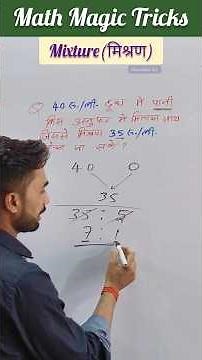 Math Magic Tricks
Mixture (मिश्रण)
Q. 40 रु./ली. दूध में पानी
किस अनुपात में मिलाया जाय
जिससे मिश्रण 35 रु./ली.
40 0
35
35 : 5
7 : 1